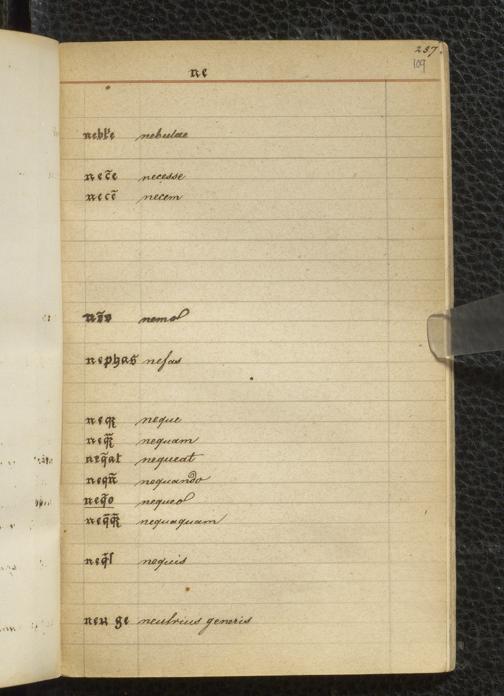 237.
109
ne
nebl'e nebulae
nec̄e necesse
necē necem
nō̄o nemo
nephas̄ nefas
neqꝫ neque
neq̄ nequam
neq̄at nequeat
neqn̄ nequando
neq̄o nequeo
neq̄q̄ nequaquam
neq̄s nequis
neu ge neutrius generis